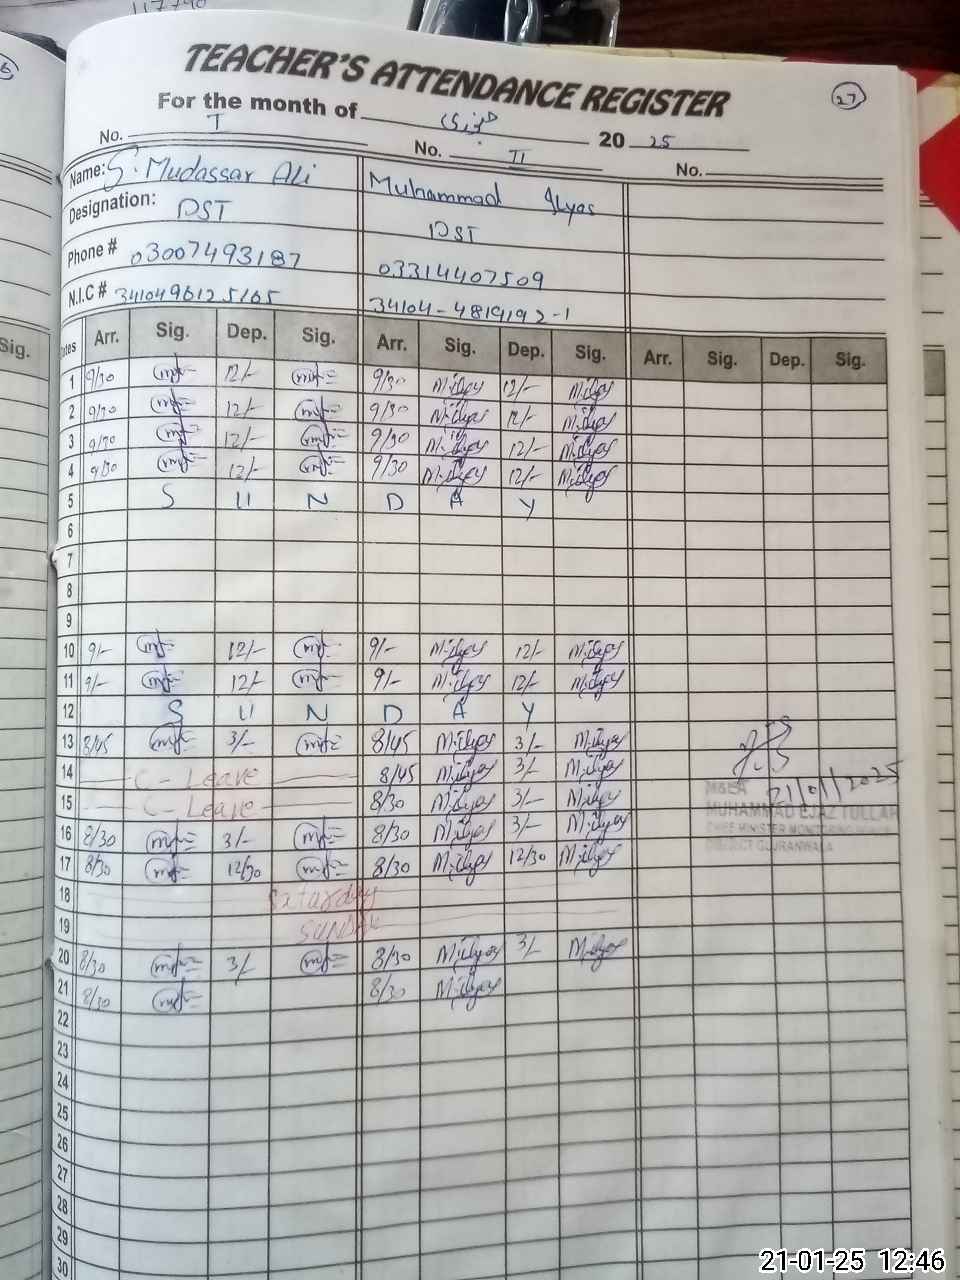 117740
TEACHER'S ATTENDANCE REGISTER
27
For the month of جنوری 20 25
No. I No. II No.
Name: S. Mudassar Ali Muhammad Ilyas
Designation: PST PST
Phone # 03007493187 03314407509
N.I.C # 3410496125165 34104-4819192-1
Sig.
Dates Arr. Sig. Dep. Sig. Arr. Sig. Dep. Sig. Arr. Sig. Dep. Sig.
1 9/30 12/- 9/30 M.ilyas 12/- M.ilyas
2 9/30 12/- 9/30 M.ilyas 12/- M.ilyas
3 9/30 12/- 9/30 M.ilyas 12/- M.ilyas
4 9/30 12/- 9/30 M.ilyas 12/- M.ilyas
5 S U N D A Y
6
7
8
9
10 9/- 12/- 9/- M.ilyas 12/- M.ilyas
11 9/- 12/- 9/- M.ilyas 12/- M.ilyas
12 S U N D A Y
13 8/45 3/- 8/45 M.ilyas 3/- M.ilyas
14 C - Leave 8/45 M.ilyas 3/- M.ilyas
15 C - Leave 8/30 M.ilyas 3/- M.ilyas
16 8/30 3/- 8/30 M.ilyas 3/- M.ilyas
17 8/30 12/30 8/30 M.ilyas 12/30 M.ilyas
21/01/2025
M&EA
MUHAMMAD EJAZ TULLAH
CHIEF MINISTER MONITORING
DISTRICT GUJRANWALA
18 Saturday
19 SUNDAY
20 8/30 3/- 8/30 M.ilyas 3/- M.ilyas
21 8/30 8/30 M.ilyas
22
23
24
25
26
27
28
29
30
21-01-25 12:46